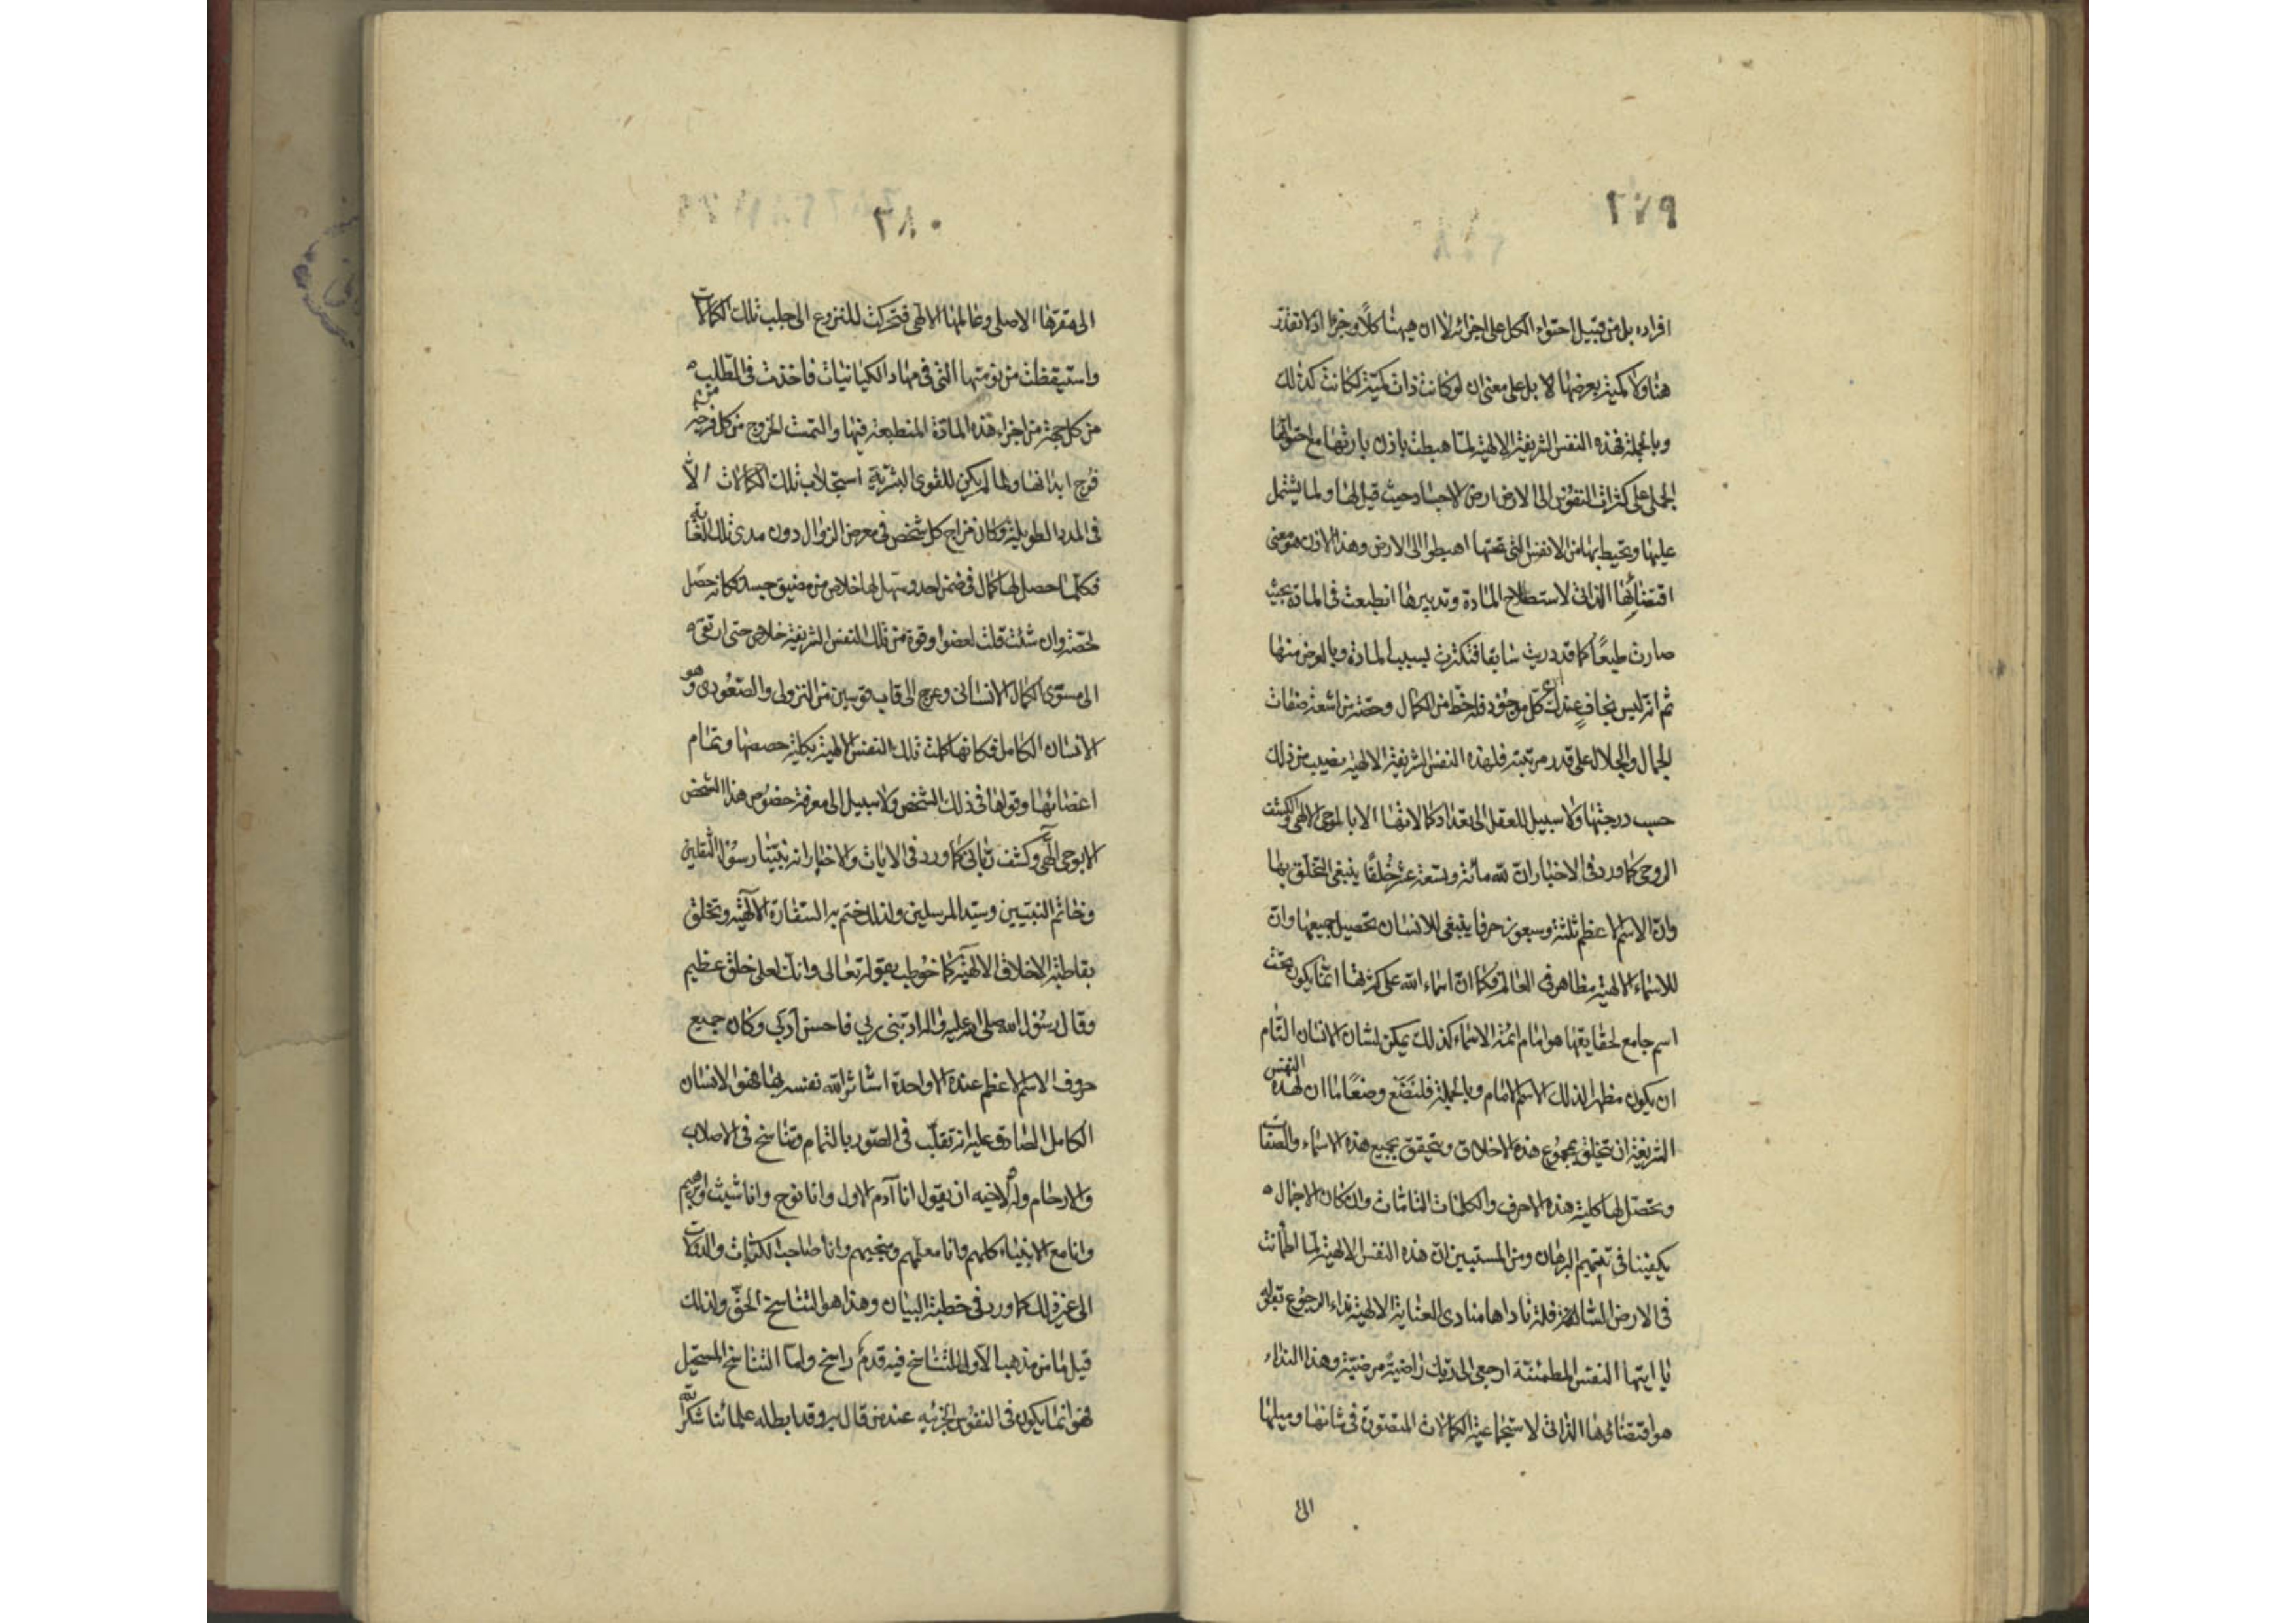 ٢٧٩
افراده بل من قبيل احتواء الكل على اجزائه لا ان هيهنا كلاً وجزءا اذ لا تقدّر
هنا ولا كمية يعرضها لا بل على معنى ان لو كانت ذات كمية لكانت كذلك
وبالجملة فهذه النفس الشريفة الالهية لمّا هبطت باذن بارئها مع احتوائها
الجملى على كثرات النفوس الى الارض ارض الاجساد حيث قيل لها ولما يشتمل
عليها ويحيط بها من الانفس التى تحتها اهبطوا الى الارض وهذا الاذن هو معنى
اقتضائها الذاتى لاستصلاح المادة وتدبيرها انطبعت فى المادة بحيث
صارت طبعًا كما قد دريت سابقا فتكثرت بسبب المادة وبالعرض منها
ثم انه ليس بخافٍ عندك كل موجود فله حظ من الكمال وحصّة من اشعة صفات
الجمال والجلال على قدر مرتبته فلهذه النفس الشريفة الالهية نصيب من ذلك
حسب درجتها ولا سبيل للعقل الى تعداد كمالاتها الا بالوحى الالهى والكشف
الروحى كما ورد فى الاخبار ان لله مائة وبسعة عشر خُلقًا ينبغى التخلق بها
وانّ الاسم الاعظم ثلثة وسبعون حرفا ينبغى للانسان تحصيل جميعها وانّ
للاسماء الالهية مظاهر فى العالم فكما انّ اسماء الله على كثرتها انما يكون تحت
اسم جامع لحقايقها هو امام ائمة الاسماء كذلك يمكن لشان الانسان التام
ان يكون مظهرا لذلك الاسم الامام وبالجملة فلنضع وضعًا ما ان لهذه النفس
الشريفة ان تتخلق بمجموع هذه الاخلاق وتتحقق بجميع هذه الاسماء والصفات
وتحصّل لها كلية هذه الاحرف والكلمات التامات وان كان الاجمال
يكفينا فى تتميم البرهان ومن المستبين انّ هذه النفس الالهية لمّا اطمأنت
فى الارض نادها منادى العناية الالهية نداء الرجوع
يا ايتها النفس المطمئنة ارجعى الى ربك راضية مرضيّة وهذا النداء
هو اقتضاؤها الذاتى لاستجماعية الكمالات المتصورة فى شانها وميلها
الى
٢٨٠
الى مقرّها الاصلى وعالمها الالهى فتحركت للنزوع الى جلب تلك الكمالات
واستيقظت من نومتها التى فى مهاد الكيانيات فاخذت فى الطلب
من كل جهة من اجزاء هذه المادة المنطبعة فيها والتمست الخروج من كل فرجة من
فُرج ابدانها ولما لم يكن للقوى البشرية استجلاب تلك الكمالات الّا
فى المدد الطويلة وكان مزاج كل شخص فى معرض الزوال دون مدى تلك الغاية
فكلما حصل لها كمال فى ضمن احد وسهل لها خلاص من مضيق حبسه فكانه حصل
لحصّة وان شئت قلت لعضو او قوة من تلك النفس الشريفة خلاص حتى ارتقى
الى مستوى الكمال الانسانى وعرج الى قاب قوسين من النزولى والصّعُودى وهو
الانسان الكامل فكانها كملت تلك النفس الالهية بكلية حصصها وتمام
اعضائها وقواها فى ذلك الشخص ولا سبيل الى معرفة خصُوص هذا الشخص
الا بوحى الٰهى وكشف ربّانى كما ورد فى الايات والاخبار انه نبيّنا رسُول الثقلين
وخاتم النبيّين وسيّد المرسلين ولذلك ختم به السّفارة الالٓهية وتخلق
بقاطبة الاخلاق الالهية كما خوُطب بقوله تعالى وانك لعلى خلق عظيم
وقال رسُول الله صلى الله عليه واله ادّبنى ربي فاحسن ادبي وكان جميع
حروف الاسم الاعظم عنده الا واحدة استاثر الله نفسه بها فهو الانسان
الكامل الصّادق عليه انه تقلّب فى الصّور بالتمام وتناسخ فى الاصلاب
والارحام وله لاخيه ان يقول انا آدم الاول وانا نوح وانا شيث وابرهيم
وانا مع الانبياء كلهم وانا معلّمهم ومنجيهم وانا صاحب الكرّات والدولات
الى غير ذلك كما ورد فى خطبة البيان وهذا هو التناسخ الحقّ ولذلك
قيل ما من مذهب الّا وللتناسخ فيه قدمٌ راسخ وامّا التناسخ المستحيل
فهو انما يكون فى النفوس الجزئيه عند من قال به وقد ابطله علمائنا شكر الله